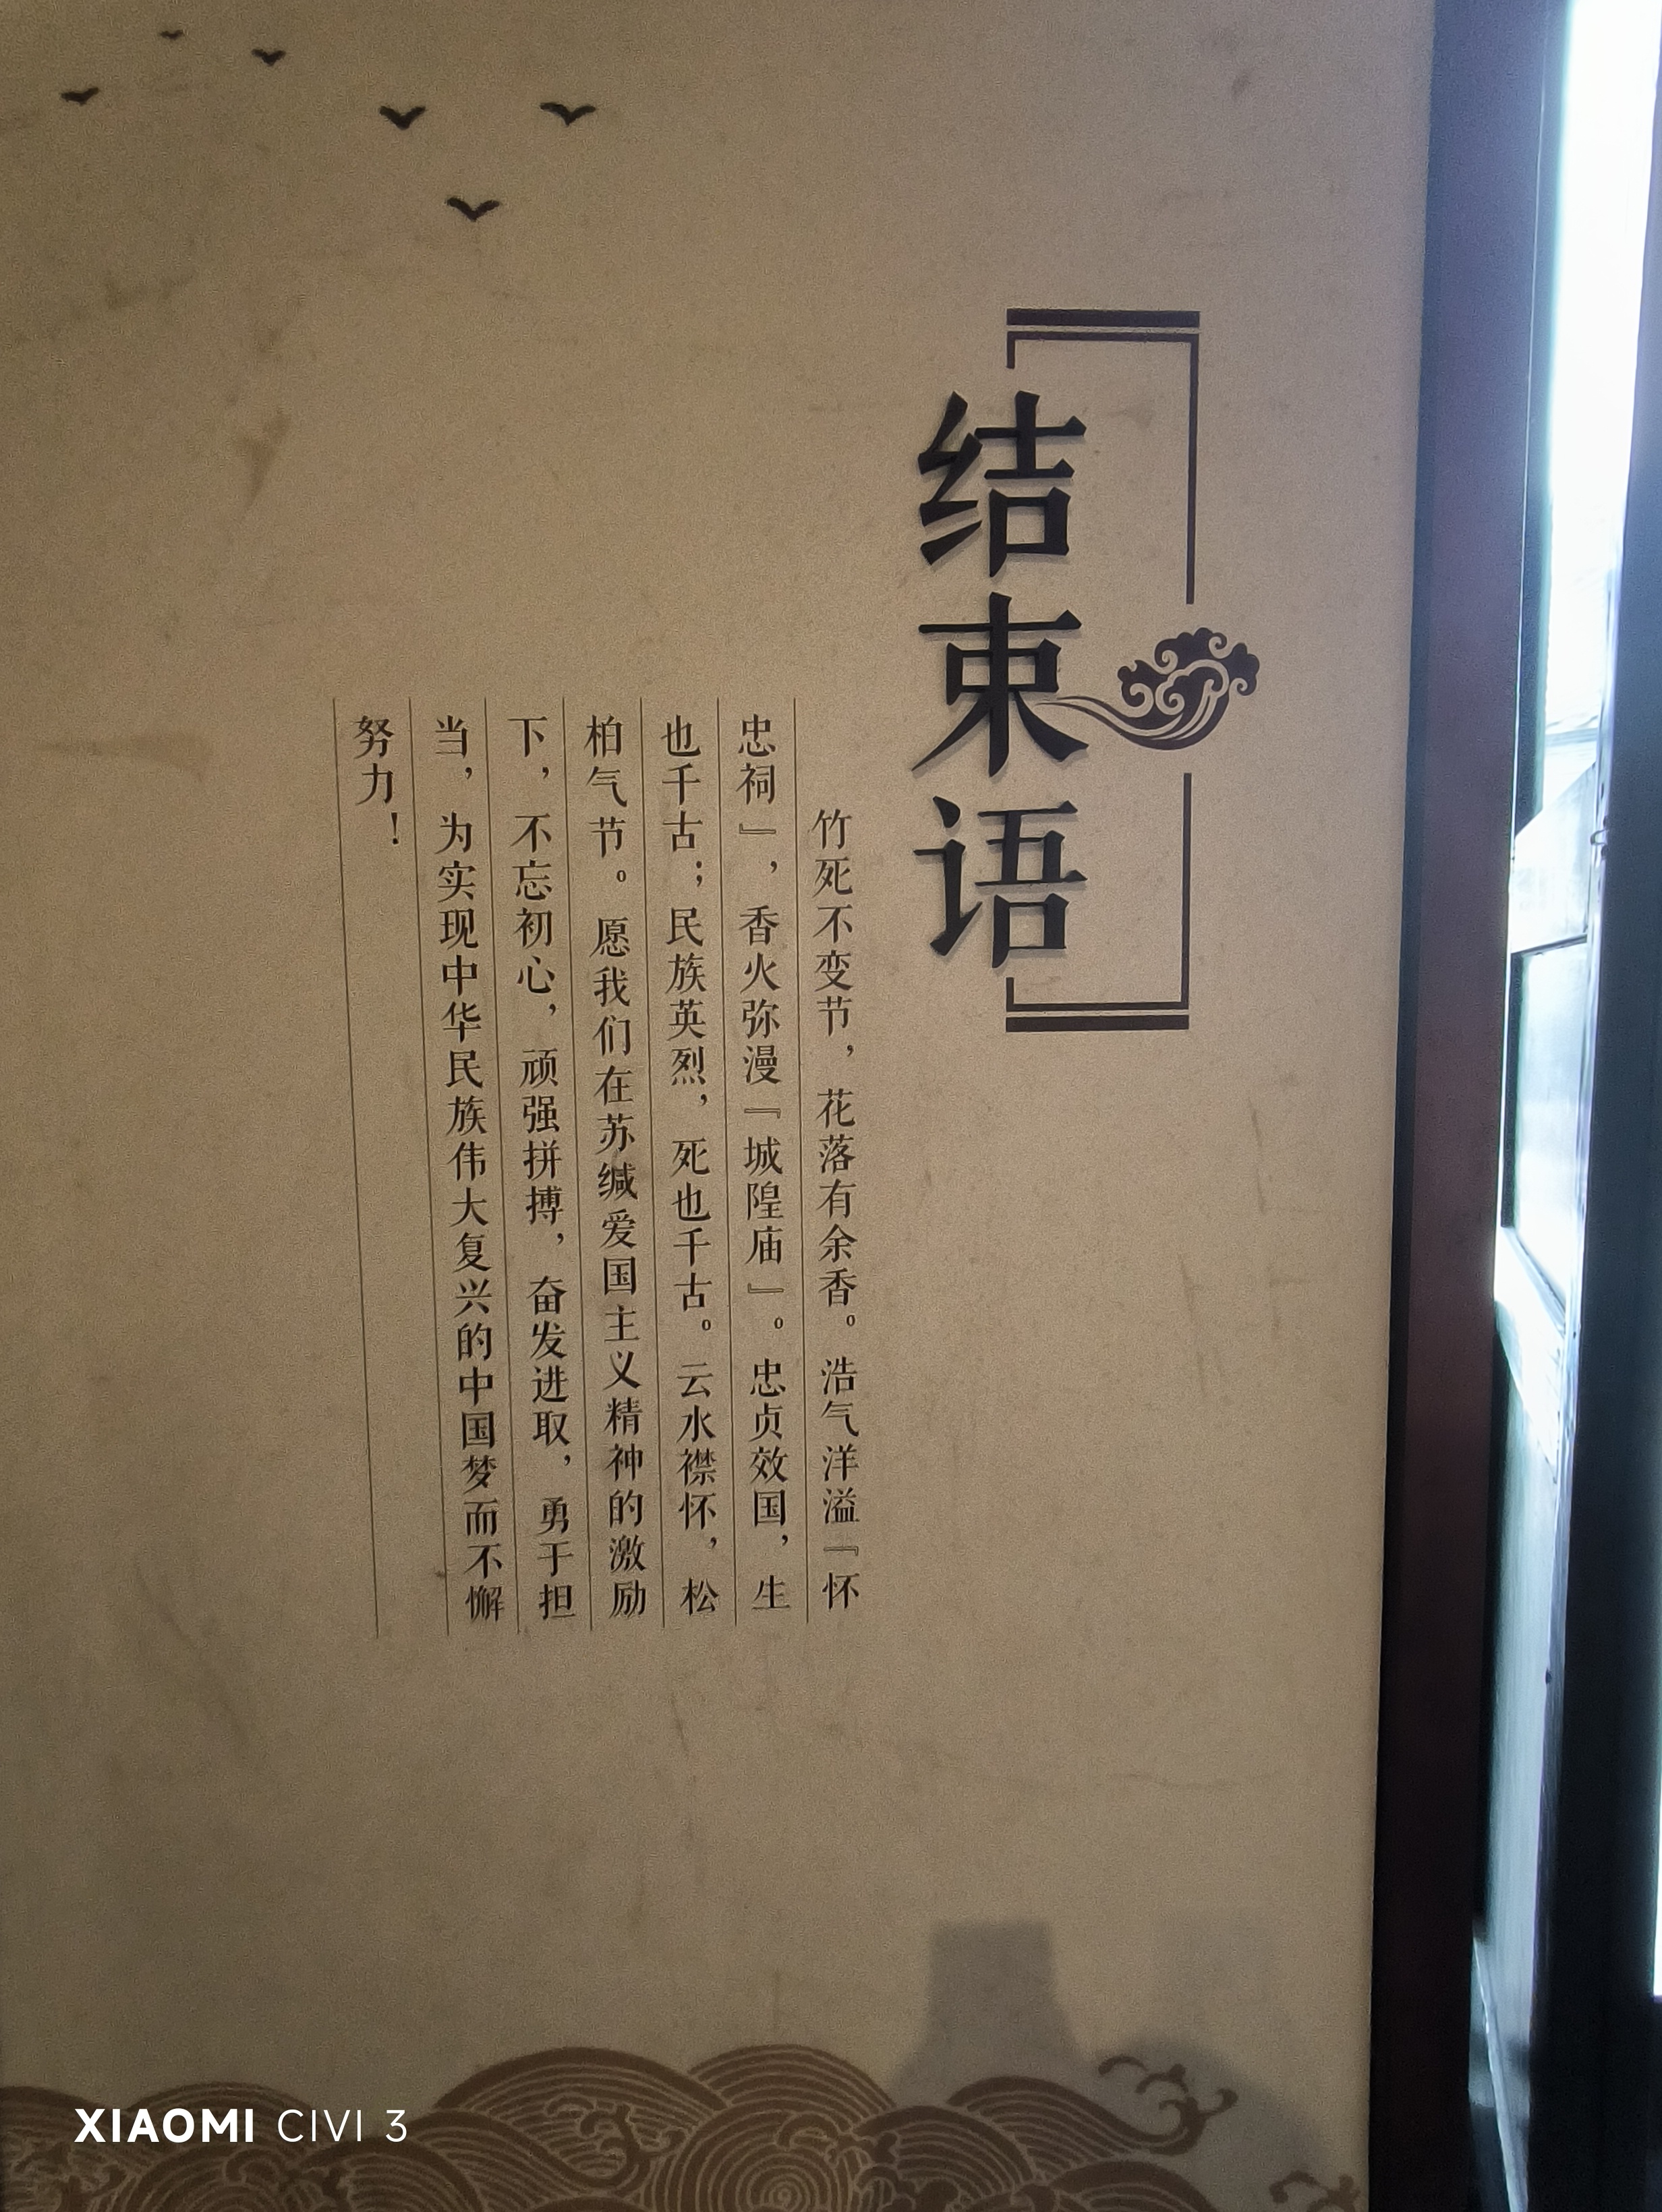 结束语
竹死不变节，花落有余香。浩气洋溢『怀
忠祠』，香火弥漫『城隍庙』。忠贞效国，生
也千古；民族英烈，死也千古。云水襟怀，松
柏气节。愿我们在苏缄爱国主义精神的激励
下，不忘初心，顽强拼搏，奋发进取，勇于担
当，为实现中华民族伟大复兴的中国梦而不懈
努力！
XIAOMI CIVI 3